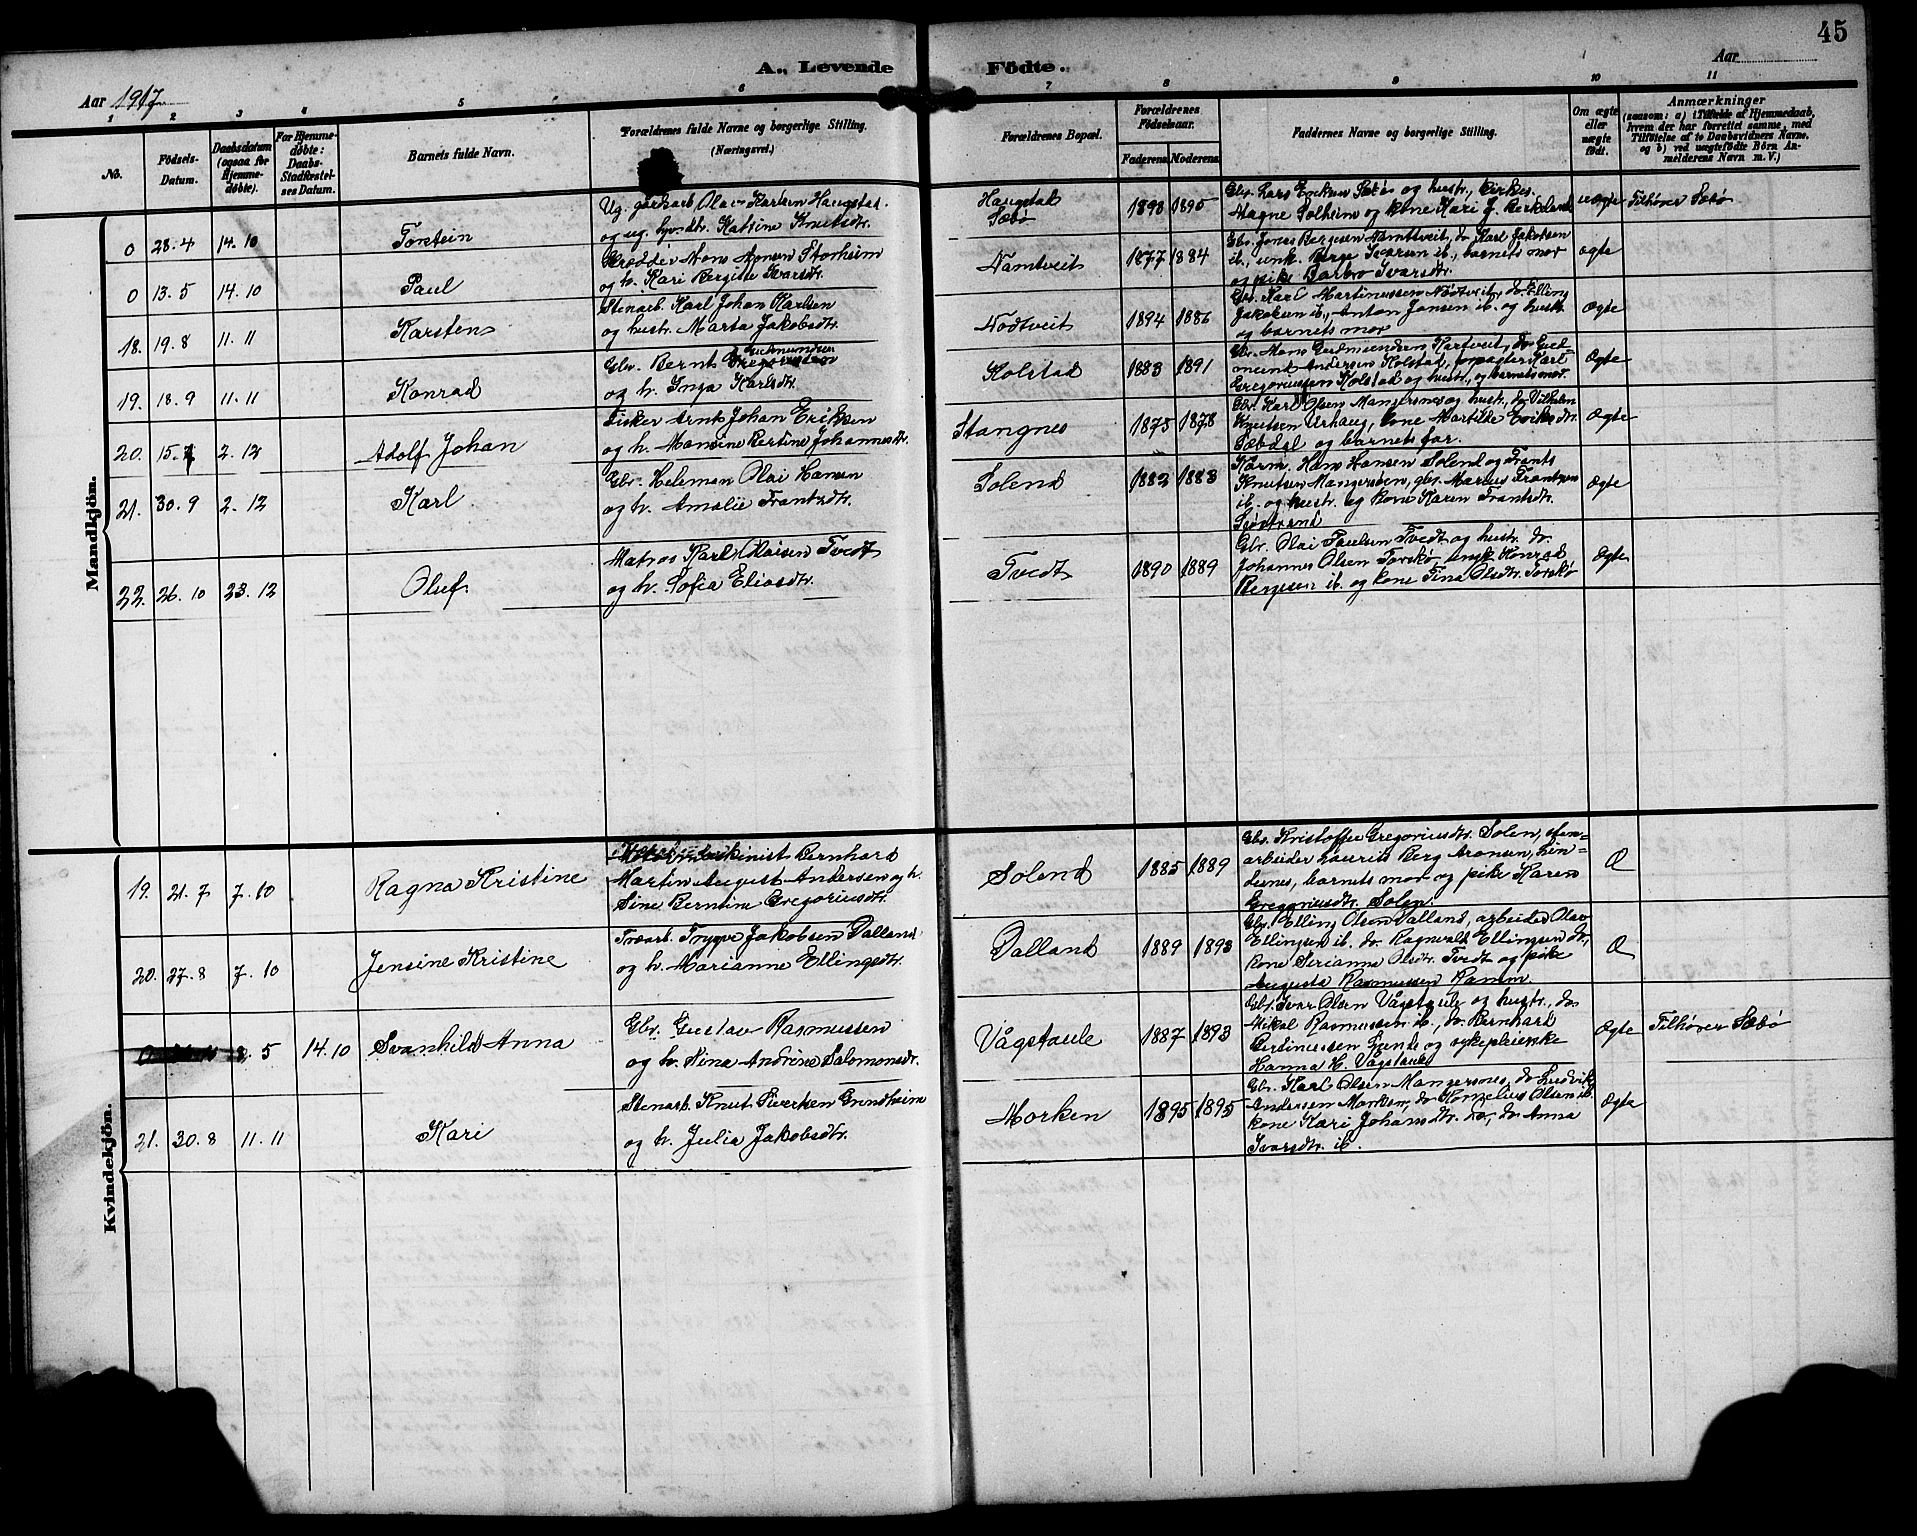 45
A., Levende Födte.
Aar 1917
Aar
1 2 3 4 5 6 7 8 9 10 11
No.
Födsels-Datum.
Daabsdatum (ogsaa for Hjemme-döbte).
For Hjemme-döbte: Daabs-Stadfæstel-ses Datum.
Barnets fulde Navn.
Forældrenes fulde Navne og borgerlige Stilling.
(Næringsvei.)
Forældrenes Bopæl.
Forældrenes Födselsaar.
Faderens Moderens
Faddernes Navne og borgerlige Stilling.
Om ægte eller uægte födt.
Anmærkninger
(saasom: a) i Tilfælde af Hjemmedaab, hvem der har forrettet samme, med Tilföielse af to Daabsvidners Navne, og b) ved uægtefödte Börn Anmelderens Navn m. V.)
Mandkjön.
0 28.4 14.10 Torstein
Ug. gårdarb. Olav Karlsen Haugstad
og ug. Katrine Knutsdtr.
Haugstad
Sæbö
1898 1895
Gbr. Lars Eriksen Sæbö og hustr.,
Magne Solheim og kone Kari J. Berkeland
uægte
Tilhører Sæbø
0 13.5 14.10 Paul
Mons Monsen Storheim
og h. Kari Bergitte Ivarsdtr.
Namtveit
1877 1884
Gbr. Jonas Bergesen Namtveit, do Karl Jakobsen
ib., unk. Berge Ivarsen ib., barnets mor
og pike Barbro Ivarsdtr.
ægte
18. 19.8 11.11 Karsten
Stenarb. Karl Johan Karlsen
og hustr. Marta Jakobsdtr.
Nödtveit
1894 1886
Gbr. Karl Martinussen Nödtveit, do. Elling
Jakobsen ib., Anton Jansen ib. og hustr.
og barnets mor
Ægte
19. 18.9 11.11 Konrad
Gbr. Bernt Gudmundsen
og h. Inga Karlsdtr.
Kolstad
1883 1891
Gbr. Mons Gudmundsen Hartveit, do Gud-
mund Andersen Kolstad, forpagter Karl
Gregoriussen Kolstad og hustr., og barnets mor.
Ægte
20. 15. 2.12 Adolf Johan
Fisker Arnt Johan Eriksen
og h. Mansine Bertine Johannesdtr.
Stangnes
1875 1878
Gbr. Karl Olsen Mangersnes og hustr., do Vilhelm
Knutsen Urhaug, kone Martilde Eriksdtr.
Sæbdal og barnets far.
Ægte
21. 30.9 2.12 Karl
Gbr. Heleman Olai Hansen
og h. Amalie Frantzdtr.
Solend
1882 1883
Kårm. Hans Hansen Solend og Frants
Knutsen Mangersöen, gbr. Marius Frantzen
ib. og hustr. og kone Karen Frantsdtr.
Sjöstrand
Ægte
22. 26.10 23.12 Oluf.
Matros Karl Olaisen Tvedt
og h. Sofia Eliasdtr.
Tvedt
1890 1889
Gbr. Olai Paulsen Tvedt og hustr. do.
Johannes Olsen Torskø, unk. Konrad
Bergesen ib. og kone Tina Olsdtr. Torskø
Ægte
Kvindekjön.
19. 21.7 7.10 Ragna Kristine
Bernhard
Martin August Andersen og h.
Sine Berntine Gregoriusdtr.
Solend
1885 1889
Gbr. Kristoffer Gregoriusdtr. Solen, sten-
arbeider Laurits Berg Aronsen, Lin-
desnes, barnets mor og pike Karen
Gregoriusdtr. Solen.
Æ
20. 27.8 7.10 Jensine Kristine
Træarb. Trygve Jakobsen Dalland
og h. Marianne Ellingsdtr.
Dalland
1889 1893
Gbr. Elling Olsen Dalland, arbeider Olav
Ellingsen ib. do. Ragnvald Ellingsen do,
kone Serianna Olsdtr. Tvedt og pike
Augusta Rasmussen Ramm.
Æ
8.5 14.10 Svanhild Anna
Gbr. Gustav Rasmussen
og h. Nina Andrine Salomonsdtr.
Vågstaule
1887 1893
Gbr. Ivar Olsen Vågstaule og hustr., do.
Mikal Rasmussen ib., do. Bernhard
og sykepleierske
Hanna H. Vågstaule
Ægte
Tilhører Sæbø
21. 30.8 11.11 Kari
Stenarb. Knut Sivertsen Grindheim
og h. Julia Jakobsdtr.
Morken
1895 1895
Gbr. Karl Olsen Mangersnes, do Ludvik
Andersen Morken, do Kornelius Olsen ib.
kone Kari Johansdtr. do, do Anna
Ivarsdtr. ib.
Ægte